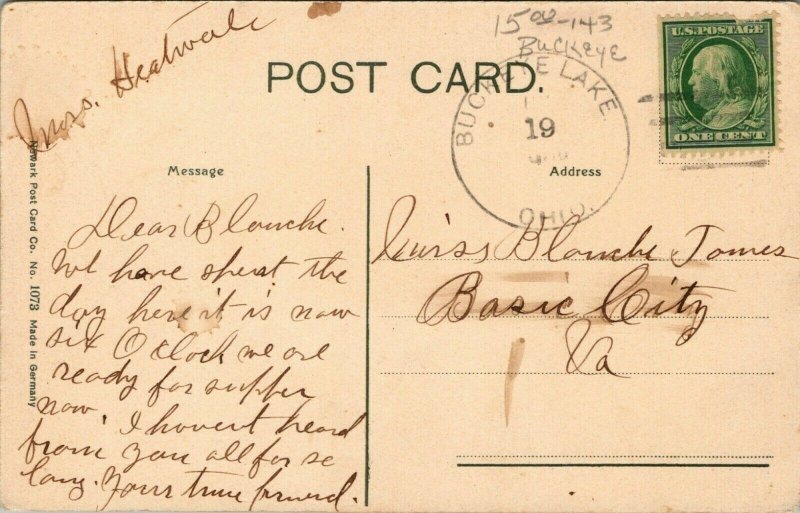 Mrs. Heatwole
1500-143
Buckeye
U.S. POSTAGE
ONE CENT
POST CARD.
BUCKEYE LAKE
19
OHIO.
Message
Address
Dear Blanche.
We have spent the
day here it is now
six O clock we are
ready for supper
now. I havent heard
from you all for so
long. Yours true
Miss Blanche James
Basic City
Va
Newark Post Card Co. No. 1073 Made in Germany